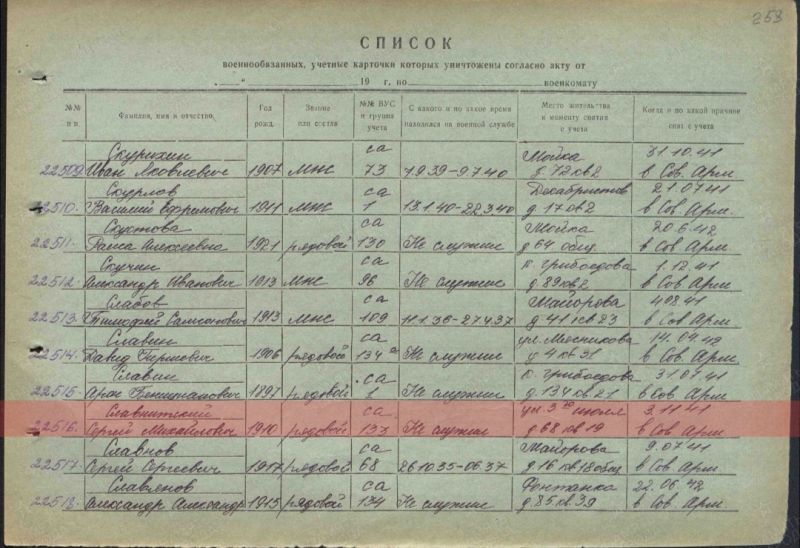 253
СПИСОК
военнообязанных, учетные карточки которых уничтожены согласно акту от
„ “ 19 г. по военкомату
№№ п п. Фамилия, имя и отчество. Год рожд. Звание или состав №№ ВУС и группа учета С какого и по какое время находился на военной службе Место жительства к моменту снятия с учета Когда и по какой причине снят с учета
Скурихин са Мойка 31.10.41
22509 Иван Яковлевич 1907 МНС 73 1.9.39-9.7.40 д.72 кв2 в Сов. Арм
Скурлов са Декабристов 21.07.41
22510. Василий Ефремович 1911 МНС 1 13.1.40-22.3.40 д.17 кв2 в Сов. Арм.
Скустова са Мойка 20.6.42
22511. Алексеевна 1921 рядовой 130 Не служил д 64 общ. в Сов. Арм
Скучин са к. Грибоедова 1.12.41
22512. Александр Иванович 1913 МНС 96 Не служил д.89 кв2 в Сов. Арм.
Слабов са Майорова 4.08.41
22513. Тимофей Самсонович 1913 МНС 109 11.1.36-27.4.37 д 41 кв 23 в Сов. Арм
Славин са ул. Мясникова 14.04.42
22514. Давид 1906 рядовой 134 Не служил д 4 кв 31 в Сов. Арм
Славин са к. Грибоедова 31.07.41
22515. Арон 1897 рядовой 1 Не служил д.134 кв.21 в Сов. Арм
Славнитский са ул. 3го июля 3.11.41
22516. Сергей Михайлович 1910 рядовой Не служил д 68 кв 19 в Сов. Арм
Славнов са Майорова 9.07.41
22517. Сергей Сергеевич 1917 рядовой 68 26.10.35-06.37 д.16 кв.18 общ в Сов. Арм.
Славянов са Фонтанка 22.06.42
22518. Александр Александр 1915 рядовой 134 Не служил д.85 кв.39 в Сов. Арм.